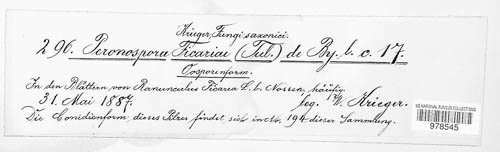 Krieger, Fungi saxonici.
296. Peronospora Ficariae (Tul.) de By. l. c. 17.
Oosporenform.
In den Blättern von Ranunculus Ficaria L. b. Nossen, häufig.
31. Mai 1887. leg. W. Krieger.
Die Conidienform dieses Pilzes findet sich in 194 dieser Sammlung.
US NATIONAL FUNGUS COLLECTIONS
978545